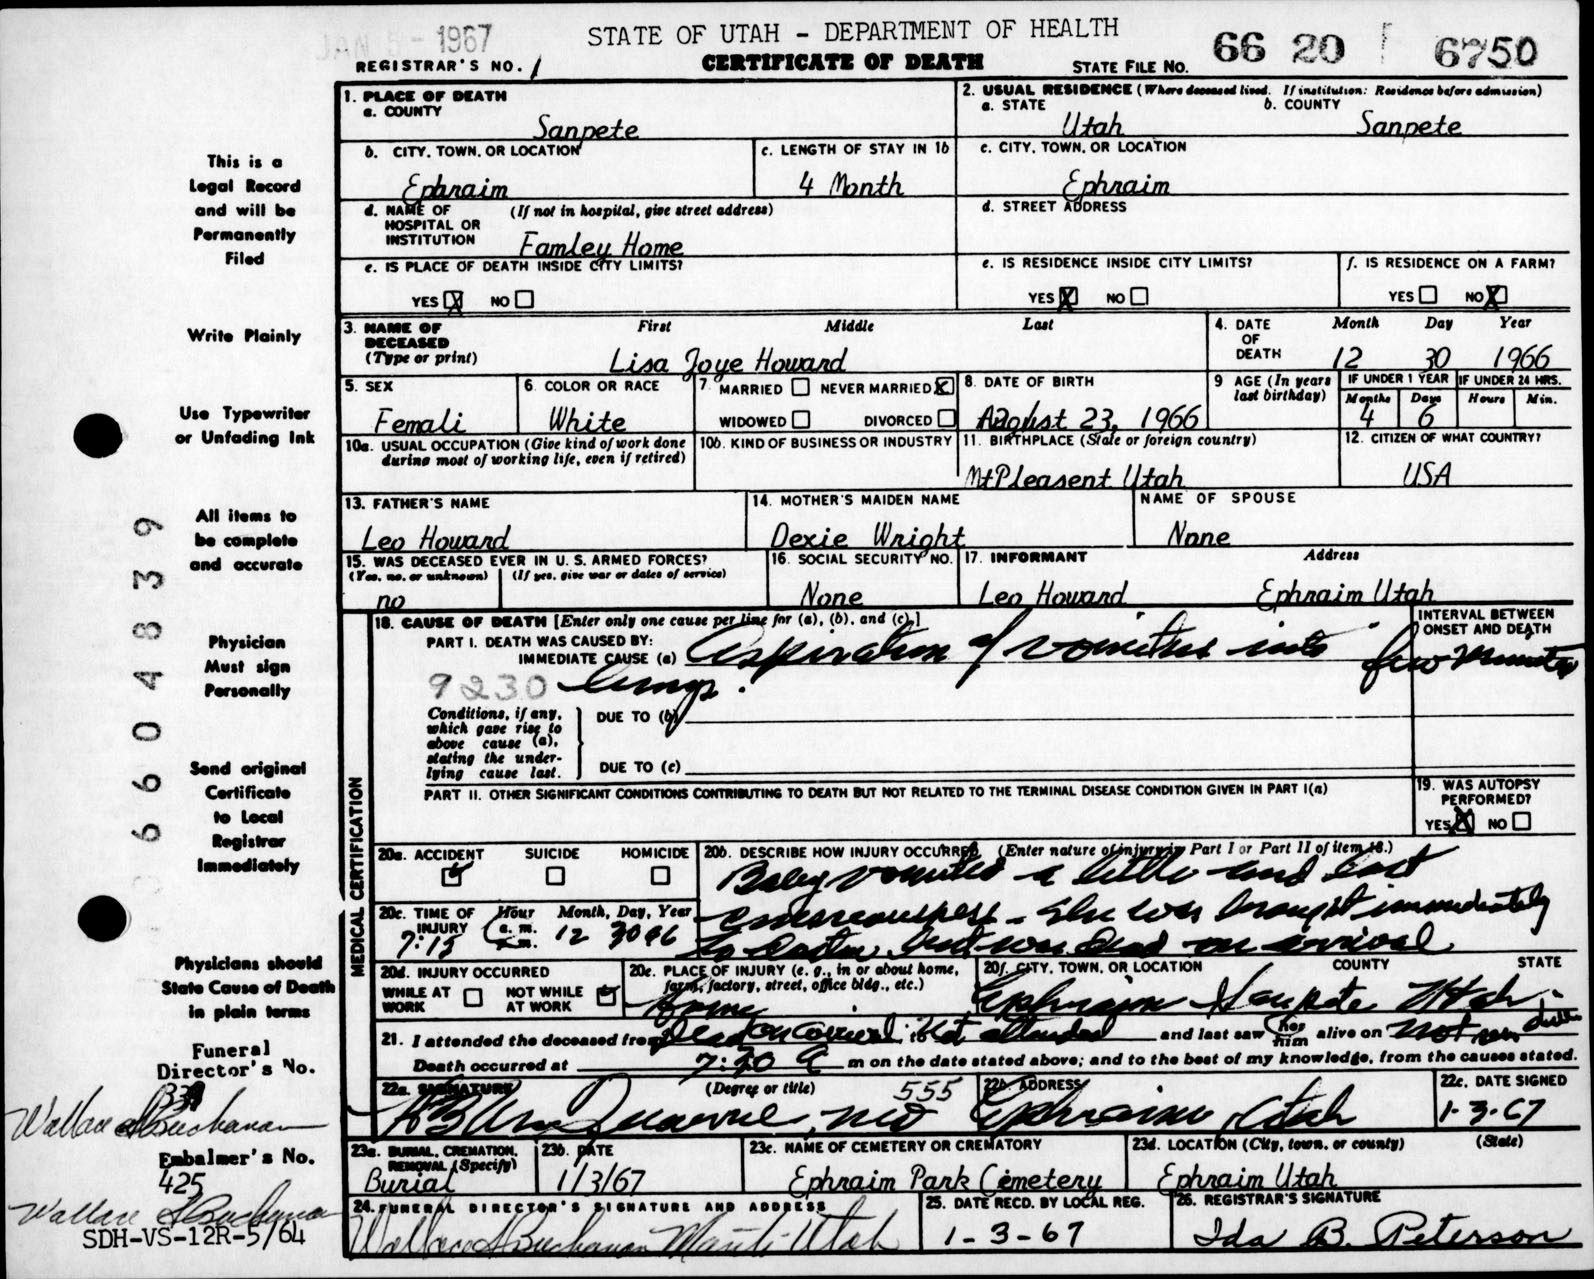 JAN 5 - 1967
STATE OF UTAH - DEPARTMENT OF HEALTH
66 20 6750
REGISTRAR'S NO. 1
CERTIFICATE OF DEATH
STATE FILE NO.
1. PLACE OF DEATH
a. COUNTY
Sanpete
2. USUAL RESIDENCE (Where deceased lived. If institution: Residence before admission)
a. STATE
Utah
b. COUNTY
Sanpete
b. CITY, TOWN, OR LOCATION
Ephraim
c. LENGTH OF STAY IN 1b
4 Month
c. CITY, TOWN, OR LOCATION
Ephraim
d. NAME OF (If not in hospital, give street address)
HOSPITAL OR
INSTITUTION Famley Home
d. STREET ADDRESS
e. IS PLACE OF DEATH INSIDE CITY LIMITS?
YES X NO
e. IS RESIDENCE INSIDE CITY LIMITS?
YES X NO
f. IS RESIDENCE ON A FARM?
YES NO X
3. NAME OF
DECEASED
(Type or print)
First Middle Last
Lisa Joye Howard
4. DATE
OF
DEATH
Month Day Year
12 30 1966
5. SEX
Femali
6. COLOR OR RACE
White
7. MARRIED NEVER MARRIED X
WIDOWED DIVORCED
8. DATE OF BIRTH
August 23, 1966
9 AGE (In years
last birthday)
IF UNDER 1 YEAR
Months Days
4 6
IF UNDER 24 HRS.
Hours Min.
10a. USUAL OCCUPATION (Give kind of work done
during most of working life, even if retired)
10b. KIND OF BUSINESS OR INDUSTRY
11. BIRTHPLACE (State or foreign country)
Mt Pleasent Utah
12. CITIZEN OF WHAT COUNTRY?
USA
13. FATHER'S NAME
Leo Howard
14. MOTHER'S MAIDEN NAME
Dexie Wright
NAME OF SPOUSE
None
15. WAS DECEASED EVER IN U. S. ARMED FORCES?
(Yes, no, or unknown) (If yes, give war or dates of service)
no
16. SOCIAL SECURITY NO.
None
17. INFORMANT Address
Leo Howard Ephraim Utah
18. CAUSE OF DEATH [Enter only one cause per line for (a), (b), and (c).]
PART I. DEATH WAS CAUSED BY:
IMMEDIATE CAUSE (a) Aspiration of vomitus into
9230 lungs.
INTERVAL BETWEEN
ONSET AND DEATH
few minutes
Conditions, if any,
which gave rise to
above cause (a),
stating the under-
lying cause last.
DUE TO (b)
DUE TO (c)
PART II. OTHER SIGNIFICANT CONDITIONS CONTRIBUTING TO DEATH BUT NOT RELATED TO THE TERMINAL DISEASE CONDITION GIVEN IN PART I(a)
19. WAS AUTOPSY
PERFORMED?
YES X NO
MEDICAL CERTIFICATION
20a. ACCIDENT SUICIDE HOMICIDE
20b. DESCRIBE HOW INJURY OCCURRED. (Enter nature of injury in Part I or Part II of item 18.)
Baby vomited a little and lost
consciousness - she was brought immediately
to doctor, but was dead on arrival
20c. TIME OF
INJURY
Hour Month, Day, Year
7:15 a. m. p. m. 12 30 66
20d. INJURY OCCURRED
WHILE AT
WORK
NOT WHILE
AT WORK
20e. PLACE OF INJURY (e. g., in or about home,
farm, factory, street, office bldg., etc.)
Home
20f. CITY, TOWN, OR LOCATION COUNTY STATE
Ephraim Sanpete Utah
21. I attended the deceased from Dead on arrival. to Not attended and last saw her him alive on Not seen
Death occurred at 7:30 a m on the date stated above; and to the best of my knowledge, from the causes stated.
22a. SIGNATURE (Degree or title) 555
MD
22b. ADDRESS
Ephraim, Utah
22c. DATE SIGNED
1-3-67
23a. BURIAL, CREMATION,
REMOVAL (Specify)
Burial
23b. DATE
1/3/67
23c. NAME OF CEMETERY OR CREMATORY
Ephraim Park Cemetery
23d. LOCATION (City, town, or county) (State)
Ephraim Utah
24. FUNERAL DIRECTOR'S SIGNATURE AND ADDRESS
Wallace S Buchanan Manti Utah
25. DATE RECD. BY LOCAL REG.
1-3-67
26. REGISTRAR'S SIGNATURE
Ida B. Peterson
This is a
Legal Record
and will be
Permanently
Filed
Write Plainly
Use Typewriter
or Unfading Ink
All items to
be complete
and accurate
Physician
Must sign
Personally
Send original
Certificate
to Local
Registrar
Immediately
Physicians should
State Cause of Death
in plain terms
Funeral
Director's No.
Wallace S Buchanan
Embalmer's No.
425
Wallace S Buchanan
SDH-VS-12R-5/64
6604839